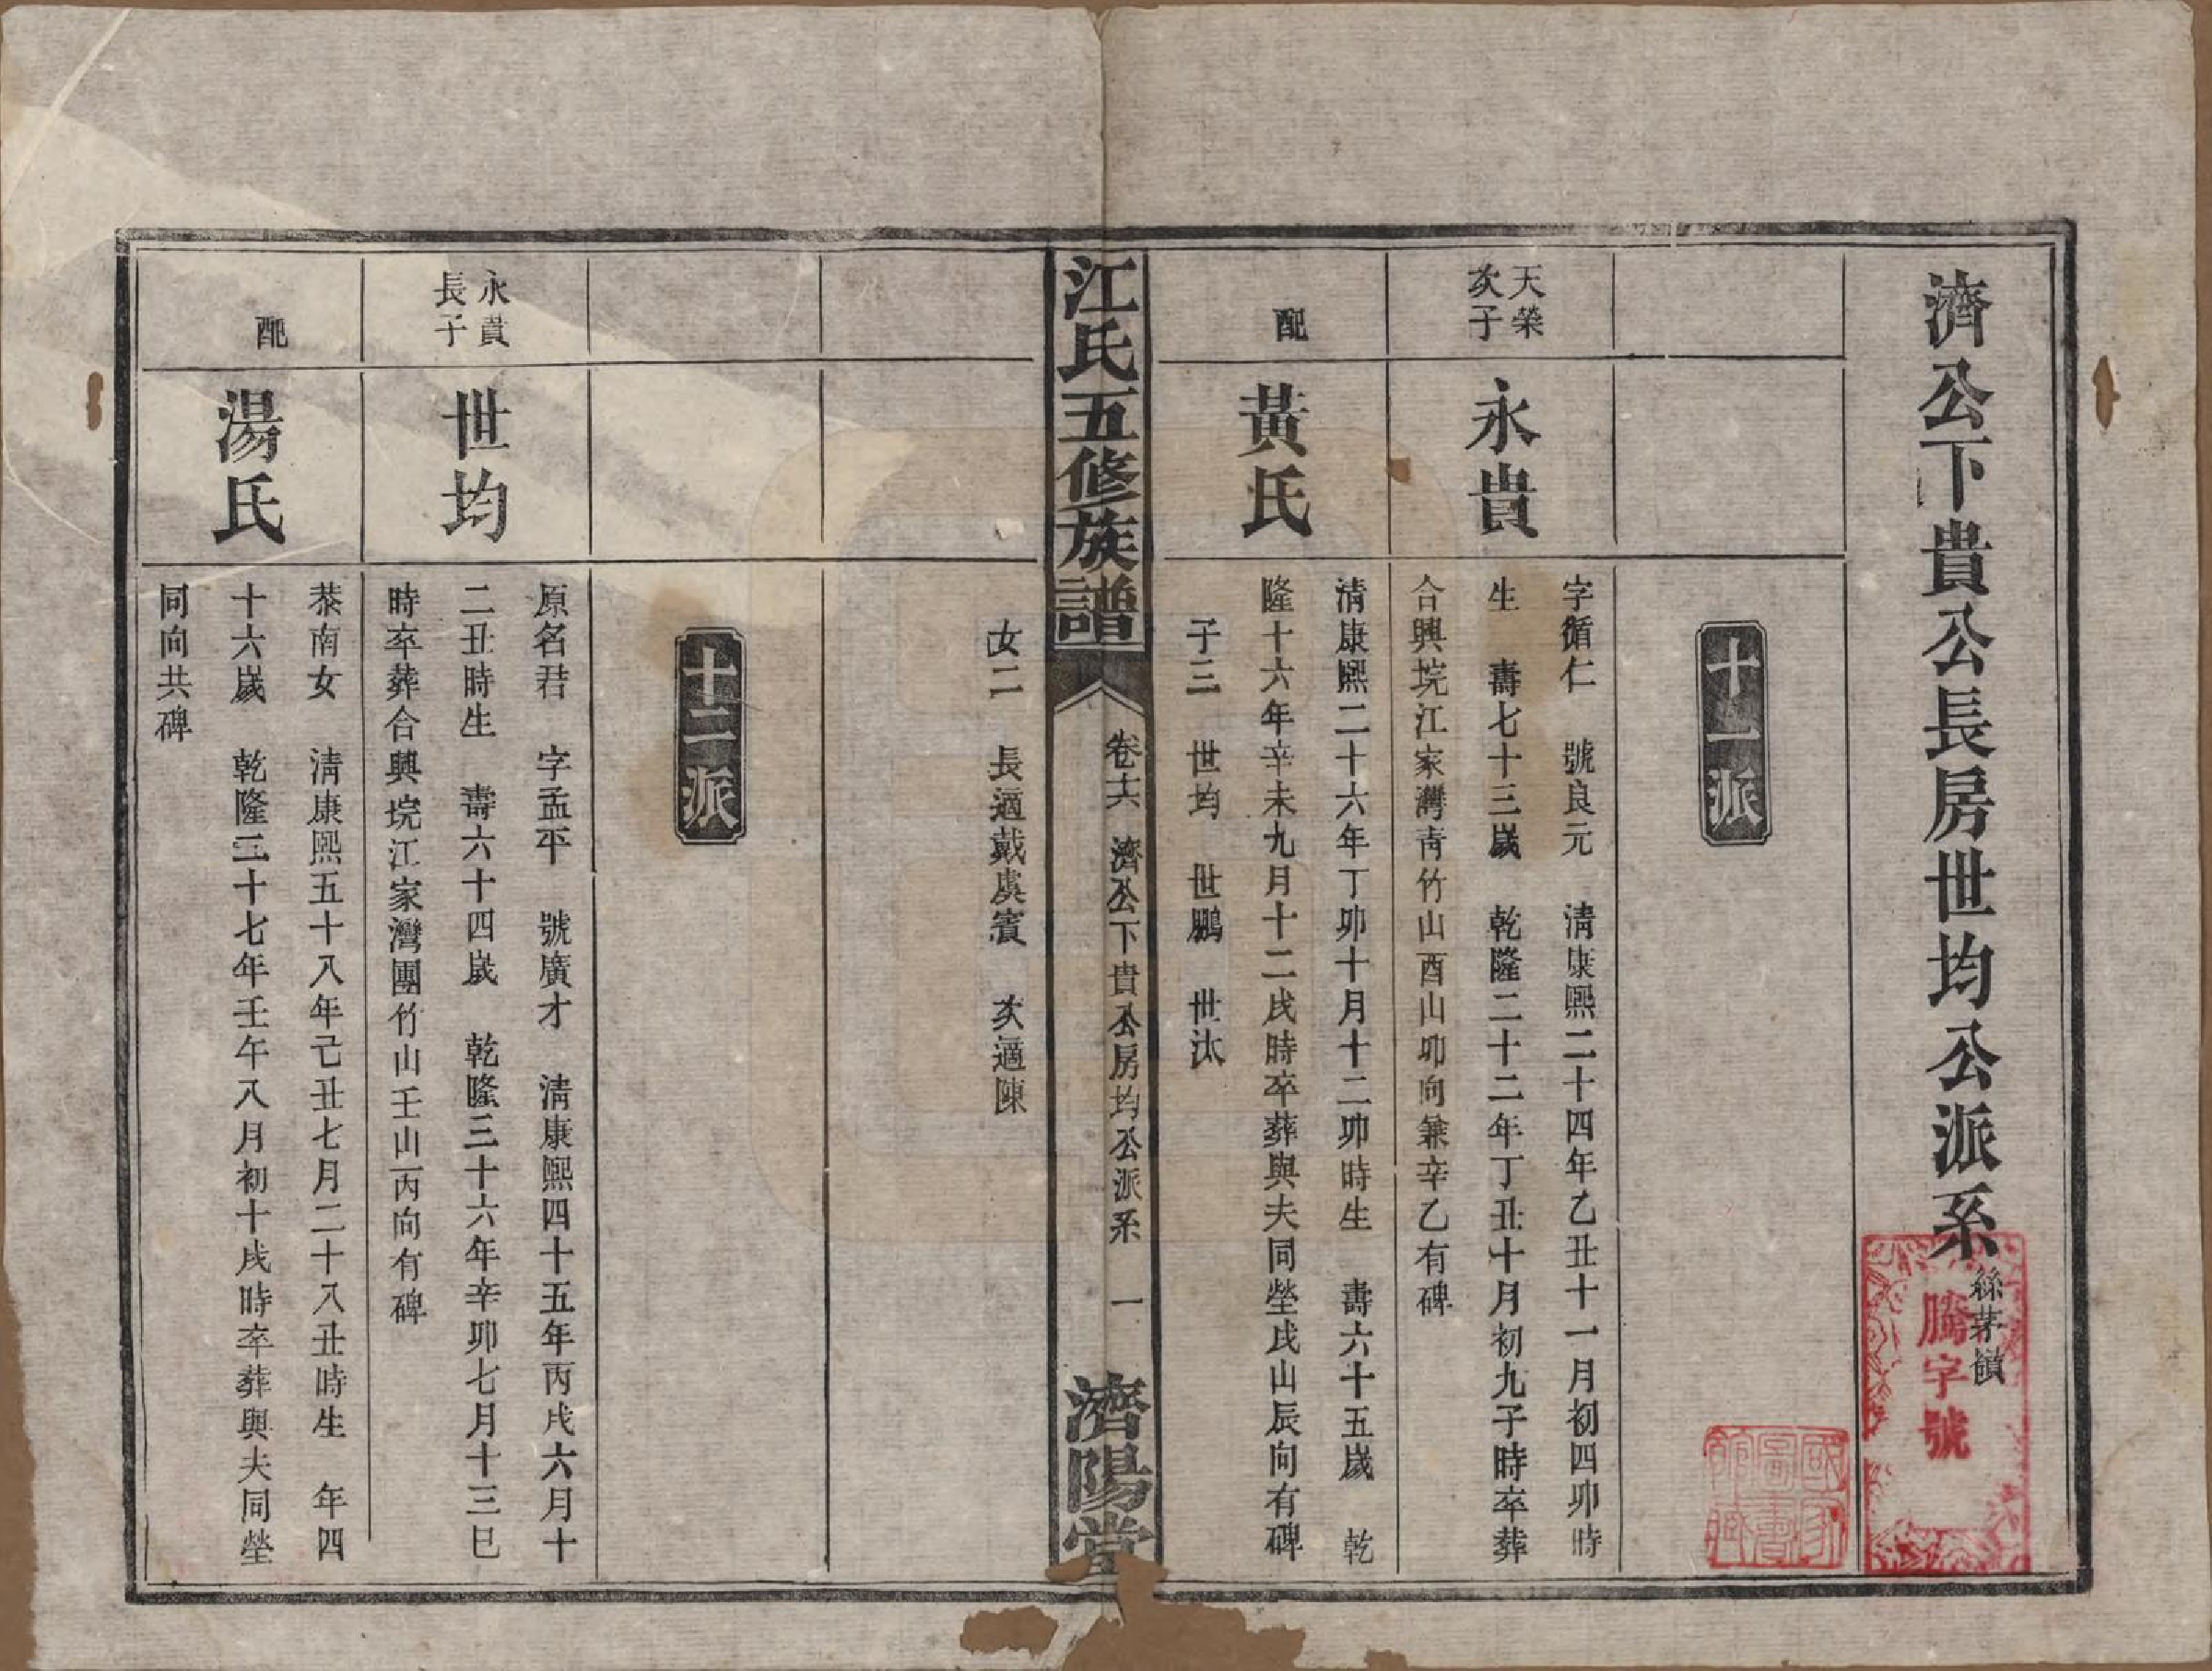 濟公下貴公長房世均公派系
絲茅嶺
騰字號
國家圖書館藏
十一派
天榮
次子
永貴
字循仁　號良元　清康熙二十四年乙丑十一月初四卯時
生　壽七十三歲　乾隆二十二年丁丑十月初九子時卒葬
合興垸江家灣青竹山酉山卯向兼辛乙有碑
配
黃氏
清康熙二十六年丁卯十月十二卯時生　壽六十五歲　乾
隆十六年辛未九月十二戌時卒葬與夫同塋戌山辰向有碑
子三　世均　世鵬　世汰
江氏五修族譜
卷十六　濟公下貴公房均公派系　一
濟陽堂
女二　長適戴虞賓　次適陳
十二派
永貴
長子
世均
原名君　字孟平　號廣才　清康熙四十五年丙戌六月十
二丑時生　壽六十四歲　乾隆三十六年辛卯七月十三巳
時卒葬合興垸江家灣團竹山壬山丙向有碑
配
湯氏
恭南女　清康熙五十八年己丑七月二十八丑時生　年四
十六歲　乾隆三十七年壬午八月初十戌時卒葬與夫同塋
同向共碑